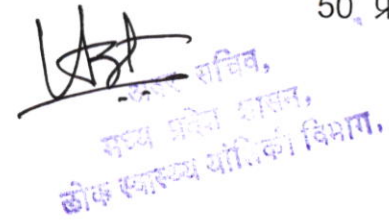 50, प्र
सचिव,
मध्य प्रदेश शासन,
लोक स्वास्थ्य यांत्रिकी विभाग,